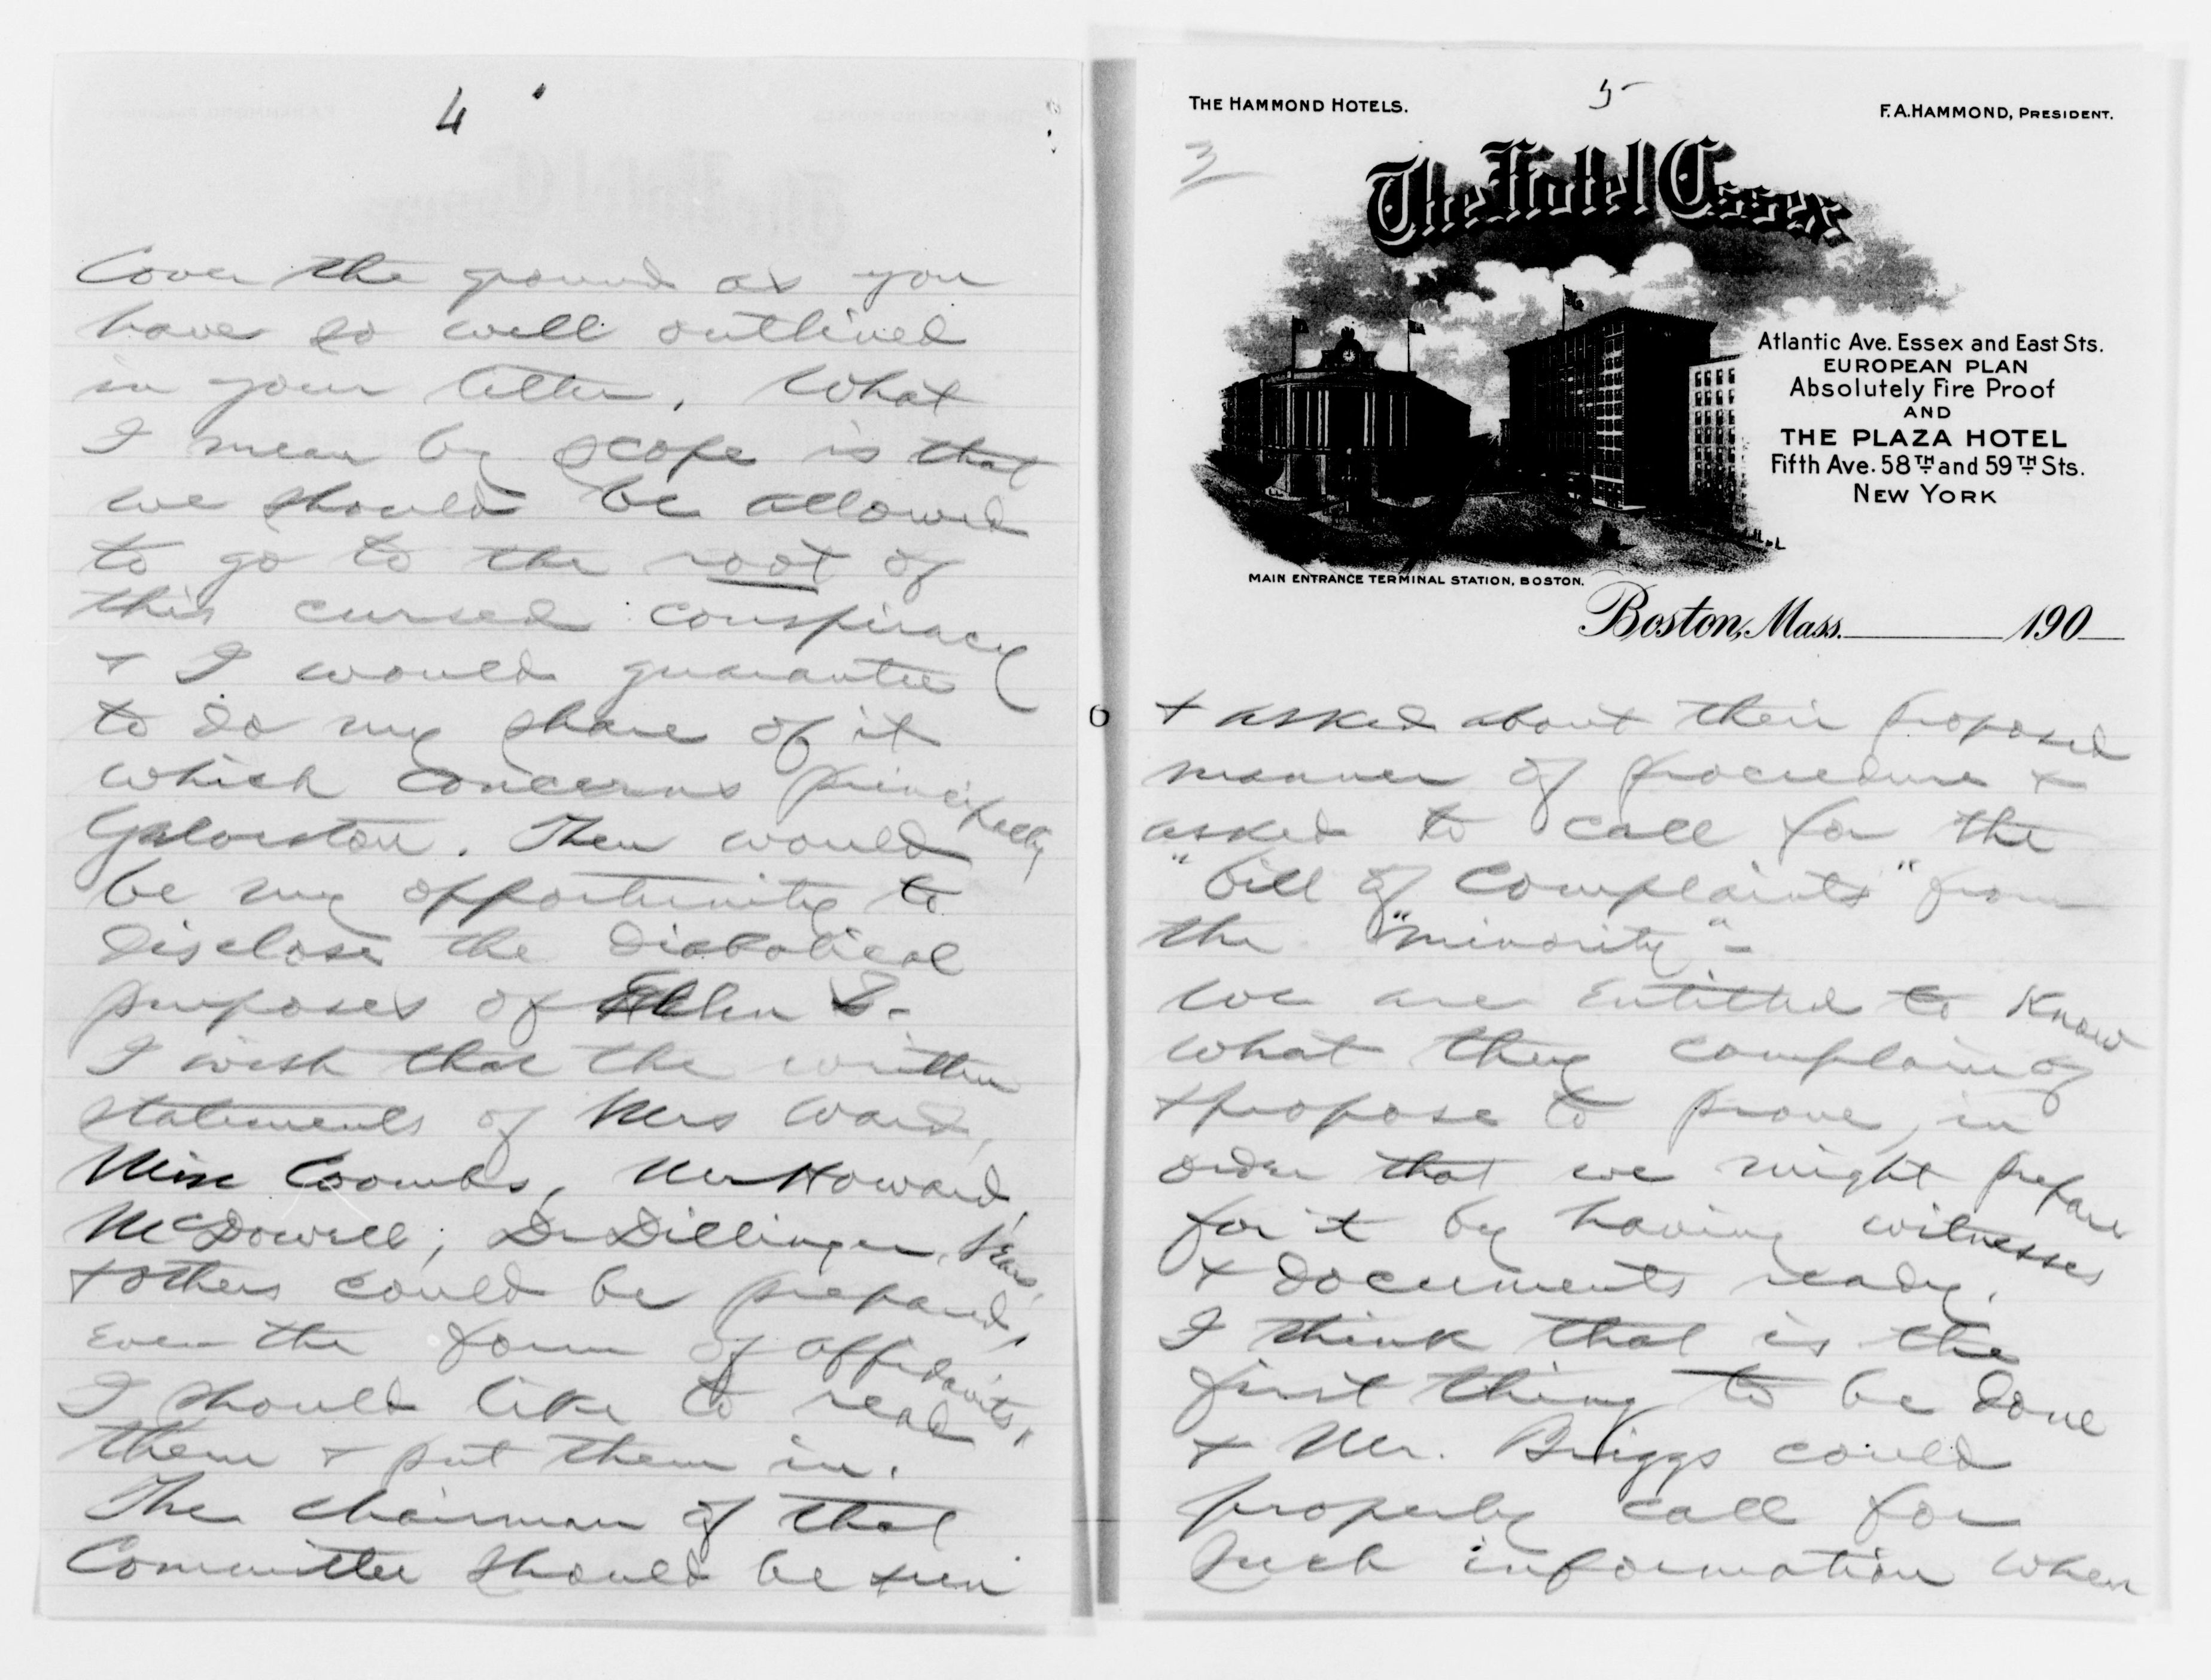 4
Cover the ground as you
have so well outlined
in your letter. What
I mean by scope is that
we should be allowed
to go to the root of
this cursed conspiracy
+ I would guarantee
to do my share of it
which concerns principally
Galveston. Then would
be my opportunity to
disclose the diabolical
purposes of Ellen S.
I wish that the written
statements of Mrs Ward,
Miss Coombs, Mrs Howard,
McDowell; Dr Dillinger, Sears,
+ others could be prepared,
even the form of affidavits,
I should like to read
them + put them in.
The chairman of that
Committee should be seen
5
THE HAMMOND HOTELS.
F.A. HAMMOND, PRESIDENT.
3
The Hotel Essex
Atlantic Ave. Essex and East Sts.
EUROPEAN PLAN
Absolutely Fire Proof
AND
THE PLAZA HOTEL
Fifth Ave. 58TH and 59TH Sts.
NEW YORK
MAIN ENTRANCE TERMINAL STATION, BOSTON.
Boston, Mass. 190
+ asked about their proposed
manner of procedure +
asked to call for the
"bill of Complaints" from
the "minority"-
We are entitled to know
what they complain of
+ propose to prove, in
order that we might prepare
for it by having witnesses
+ documents ready.
I think that is the
first thing to be done
+ Mr. Briggs could
properly call for
such information when